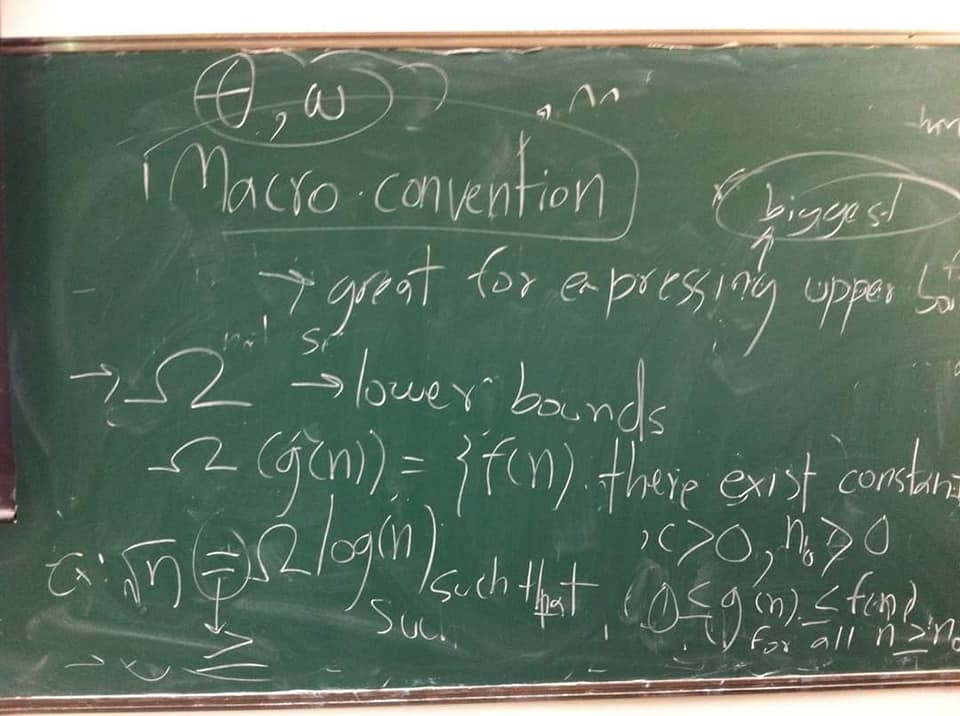 θ, ω
Macro convention
biggest
→ great for expressing upper
→ Ω → lower bounds
Ω (g(n)) = {f(n). there exist
, c>0, n₀>0
Ex: √n = Ω log(n) such that 0 ≤ g(n) ≤ f(n)
≥ for all n ≥ n₀